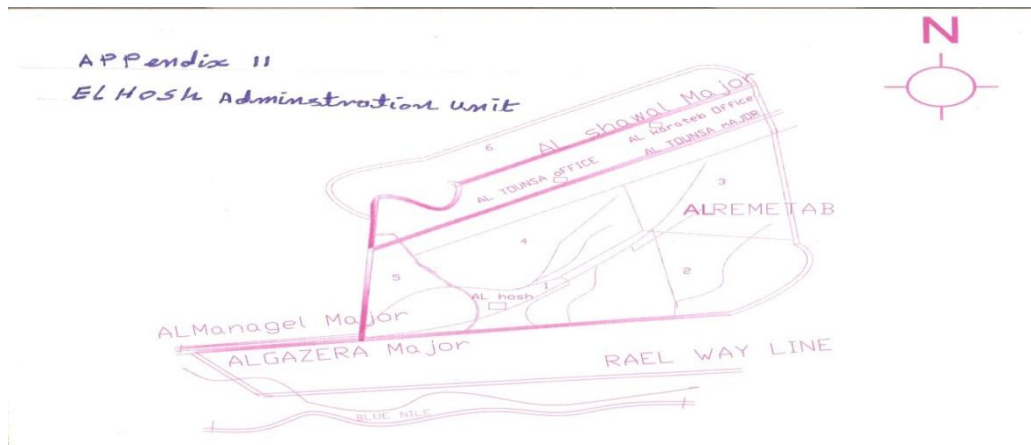 APPendix 11
EL HOSH Adminstration unit
N
AL shawal Major
6
AL Karateb Office
AL TOUNSA OFFICE
AL TOUNSA mAJOR
3
ALREMETAB
4
5
2
1
AL hosh
ALManagel Major
ALGAZERA Major
RAEL WAY LINE
BLUE NILE